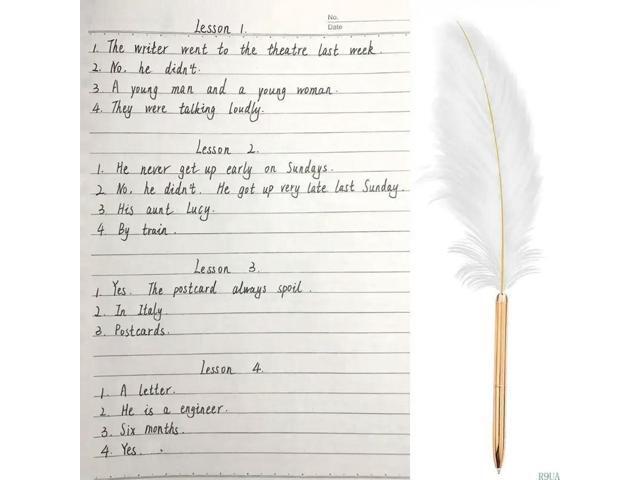 No.
Date
Lesson 1.
1. The writer went to the theatre last week.
2. No, he didn't.
3 A young man and a young woman.
4. They were talking loudly.
Lesson 2.
1. He never get up early on Sundays.
2 No, he didn't. He got up very late last Sunday.
3. His aunt Lucy.
4 By train.
Lesson 3.
1. Yes. The postcard always spoil.
2. In Italy.
3. Postcards.
Lesson 4.
1. A letter.
2. He is a engineer.
3. Six months.
4. Yes.
R9UA